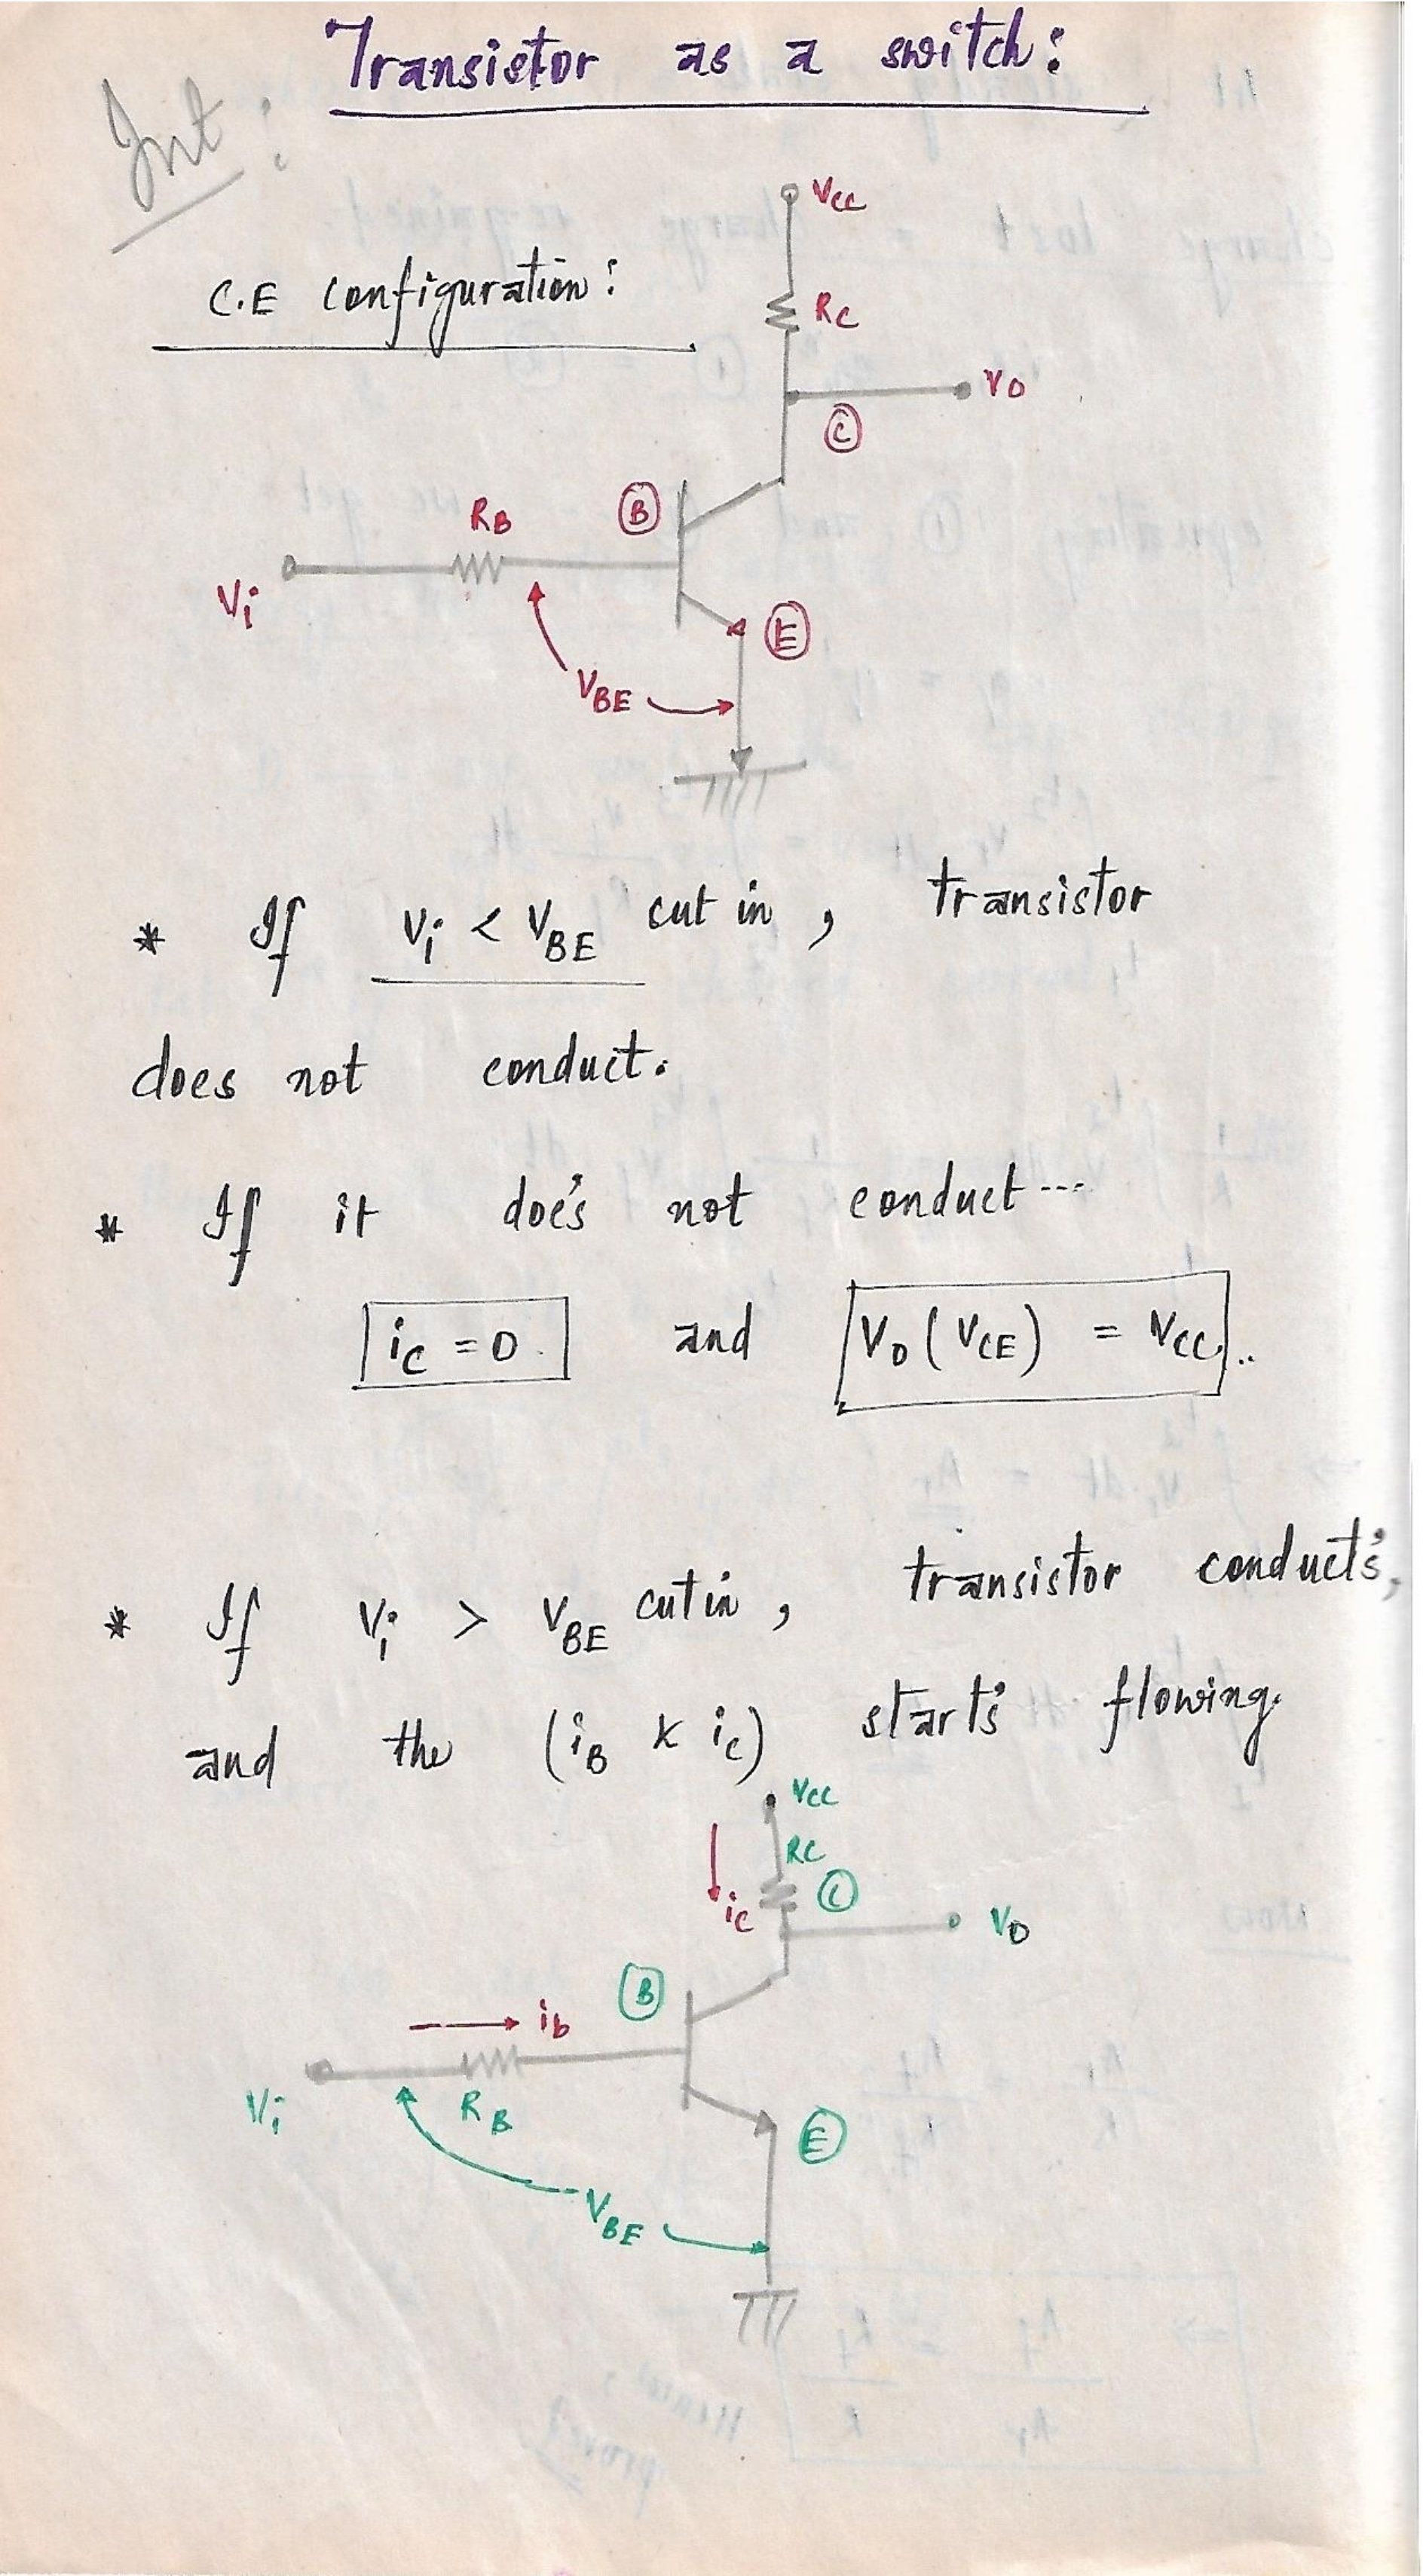 Transistor as a switch:
Int:
C.E configuration:
Vcc
Rc
Vo
C
B
RB
Vi
E
VBE
* If Vi < VBE cut in, transistor
does not conduct.
* If it doe's not conduct---
ic = 0. and Vo (VCE) = Vcc...
* If Vi > VBE cut in, transistor conduct's,
and the (iB & ic) start's flowing.
Vcc
RC
C
ic
Vo
B
ib
Vi
RB
E
VBE